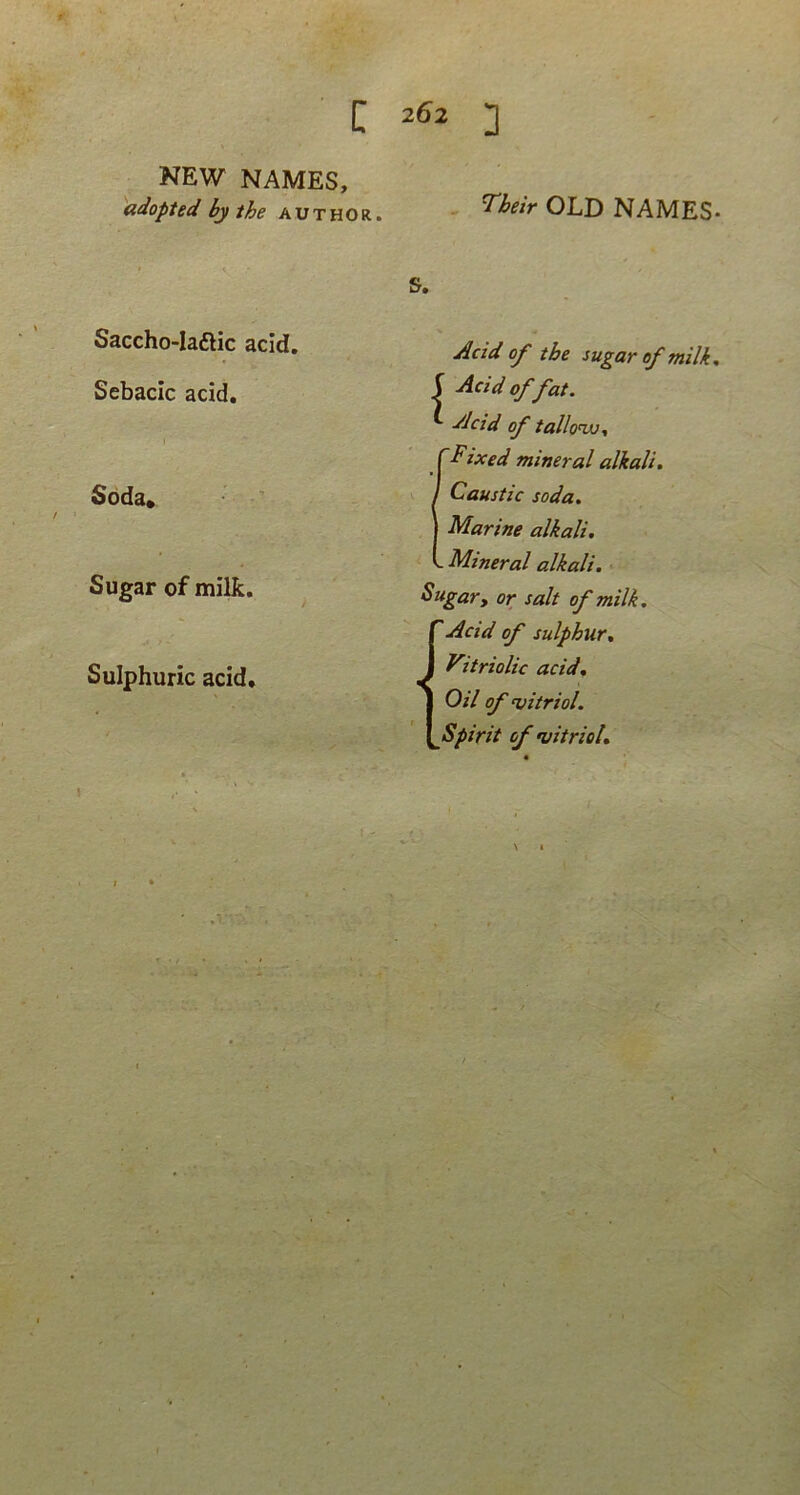 [ 262 ]
NEW NAMES,
adopted by the AUTHOR.
Their OLD NAMES.
S.
Saccho-lactic acid.
Acid of the sugar of milk.
Sebacic acid.
{ Acid of fat.
Acid of tallow,
Soda.
{ Fixed mineral alkali.
Caustic soda.
Marine alkali.
Mineral alkali.
Sugar of milk.
Sugar, or salt of milk.
Sulphuric acid.
{ Acid of sulphur.
Vitriolic acid.
Oil of vitriol.
Spirit of vitriol.